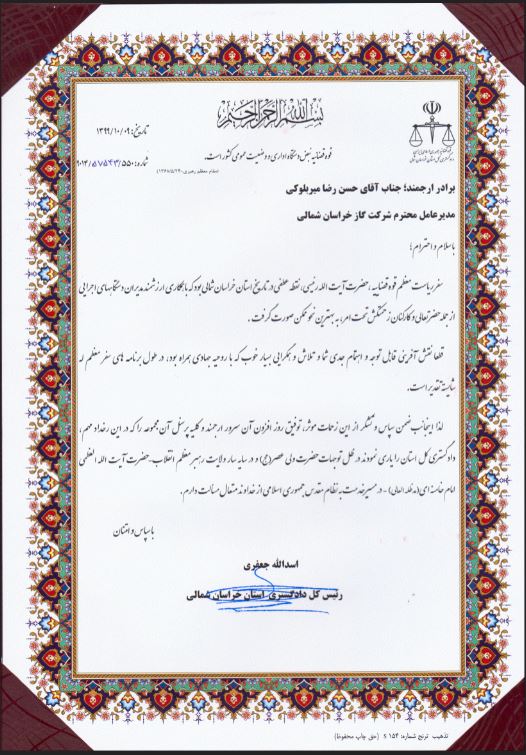 بسم الله الرحمن الرحیم
تاریخ: ۱۳۹۹/۱۰/۰۹
قوه قضاییه نبض دستگاه اداری و وضعیت عمومی کشور است.
شماره: ۹۰۱۴/۵۷۵۴۳/۵۵۰
برادر ارجمند؛ جناب آقای حسن رضا میربلوکی
مدیرعامل محترم شرکت گاز خراسان شمالی
باسلام و احترام؛
سفر ریاست معظم قوه قضاییه، حضرت آیت الله رئیسی، نقطه عطفی در تاریخ استان خراسان شمالی بود که با همکاری ارزشمند مدیران دستگاههای اجرایی
از جمله حضرتعالی و کارکنان زحمتکش تحت امر، به بهترین نحو ممکن صورت گرفت.
قطعا نقش آفرینی قابل توجه و اهتمام جدی شما و تلاش و همگرایی بسیار خوب که با روحیه جهادی همراه بود، در طول برنامه های سفر معظم له
شایسته تقدیر است.
لذا اینجانب ضمن سپاس و تشکر از این زحمات موثر، توفیق روز افزون آن سرور ارجمند و کلیه پرسنل آن مجموعه را که در این رخداد مهم،
دادگستری کل استان را یاری نمودند در ظل توجهات حضرت ولی عصر(عج) و در سایه سار ولایت رهبر معظم انقلاب، حضرت آیت الله العظمی
امام خامنه ای(مدظله العالی) - در مسیر خدمت به نظام مقدس جمهوری اسلامی از خداوند متعال مسالت دارم.
باسپاس و امتنان
اسدالله جعفری
رئیس کل دادگستری استان خراسان شمالی
تذهیب ترنج شماره: ۱۵۴ S (حق چاپ محفوظ)